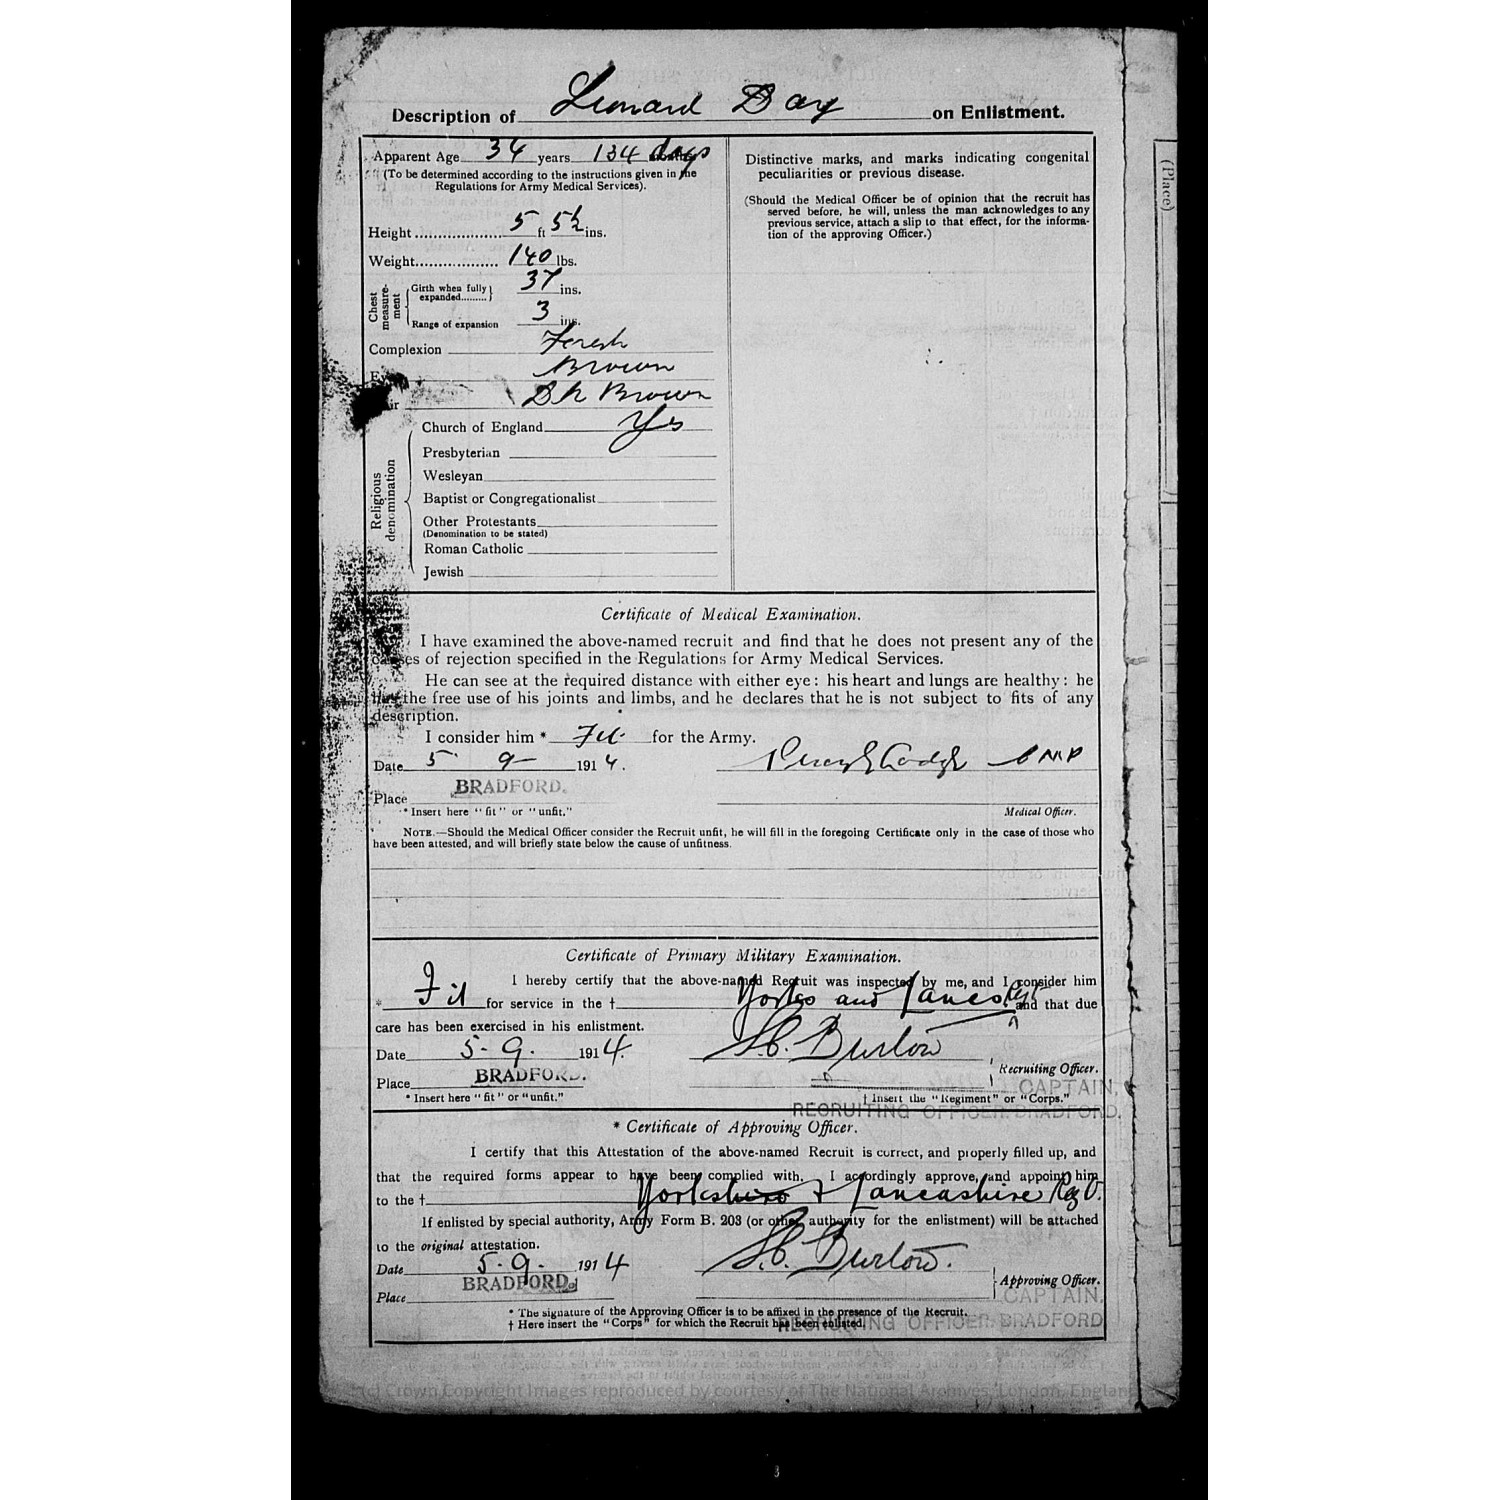 Description of Leonard Day on Enlistment.
Apparent Age 34 years 134 days
(To be determined according to the instructions given in the
Regulations for Army Medical Services).
Height 5 ft 5½ ins.
Weight 140 lbs.
Chest measure-ment
Girth when fully expanded 37 ins.
Range of expansion 3 ins.
Complexion Fresh
Brown
Dk Brown
Religious denomination
Church of England Yes
Presbyterian
Wesleyan
Baptist or Congregationalist
Other Protestants
(Denomination to be stated)
Roman Catholic
Jewish
Distinctive marks, and marks indicating congenital
peculiarities or previous disease.
(Should the Medical Officer be of opinion that the recruit has
served before, he will, unless the man acknowledges to any
previous service, attach a slip to that effect, for the informa-
tion of the approving Officer.)
(Place)
Certificate of Medical Examination.
I have examined the above-named recruit and find that he does not present any of the
causes of rejection specified in the Regulations for Army Medical Services.
He can see at the required distance with either eye: his heart and lungs are healthy: he
has the free use of his joints and limbs, and he declares that he is not subject to fits of any
description.
I consider him * Fit for the Army.
Date 5 9 1914.
Place BRADFORD.
* Insert here "fit" or "unfit."
Medical Officer.
NOTE.—Should the Medical Officer consider the Recruit unfit, he will fill in the foregoing Certificate only in the case of those who
have been attested, and will briefly state below the cause of unfitness.
Certificate of Primary Military Examination.
I hereby certify that the above-named Recruit was inspected by me, and I consider him
* Fit for service in the † Yorks and Lancs Regt and that due
care has been exercised in his enlistment.
Date 5. 9. 1914.
Place BRADFORD.
* Insert here "fit" or "unfit."
Recruiting Officer.
† Insert the "Regiment" or "Corps."
CAPTAIN,
RECRUITING OFFICER. BRADFORD.
* Certificate of Approving Officer.
I certify that this Attestation of the above-named Recruit is correct, and properly filled up, and
that the required forms appear to have been complied with. I accordingly approve, and appoint him
to the † Yorkshire & Lancashire Reg
If enlisted by special authority, Army Form B. 203 (or other authority for the enlistment) will be attached
to the original attestation.
Date 5. 9. 1914
Place BRADFORD.
Approving Officer.
CAPTAIN,
RECRUITING OFFICER. BRADFORD
* The signature of the Approving Officer is to be affixed in the presence of the Recruit.
† Here insert the "Corps" for which the Recruit has been enlisted.
(c) Crown Copyright Images reproduced by courtesy of The National Archives, London, England
3